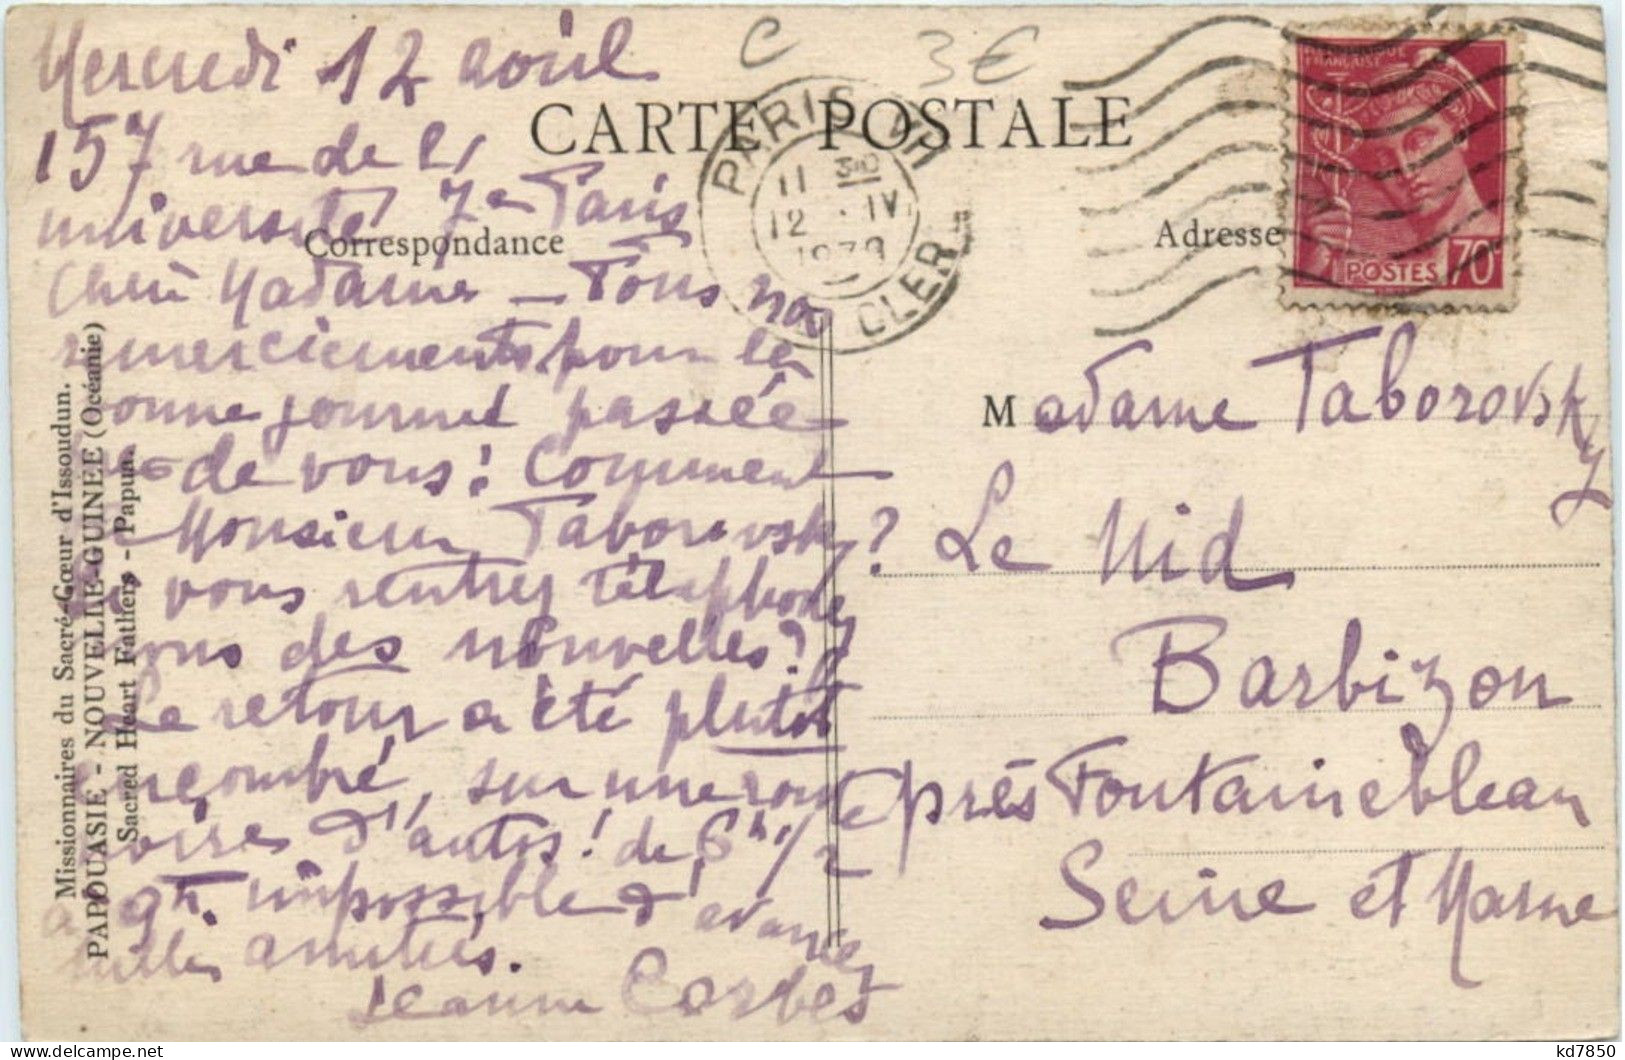 Mercredi 12 avril
C
3€
CARTE POSTALE
157 rue de l'
université 7e Paris
Correspondance
Adresse
PARIS VII
11 30
12 - IV
CLER
REPUBLIQUE
FRANÇAISE
POSTES 70c
Chère Madame - Tous nos
remerciements pour la
bonne journée passée
de vous! Comment
Monsieur Taborovsky?
vous rentrez téléphonez
nous des nouvelles?
Le retour a été plutôt
encombré, sur une route
noires d'autos! de 6h 1/2
à 9h. impossible d'avancer
milles amitiés.
Jeanne Corbes
Madame Taborovsky
Le Nid
Barbizon
près Fontainebleau
Seine et Marne
Missionnaires du Sacré-Cœur d'Issoudun.
PAPOUASIE - NOUVELLE-GUINEE (Océanie)
Sacred Heart Fathers - Papua.
delcampe.net
kd7850